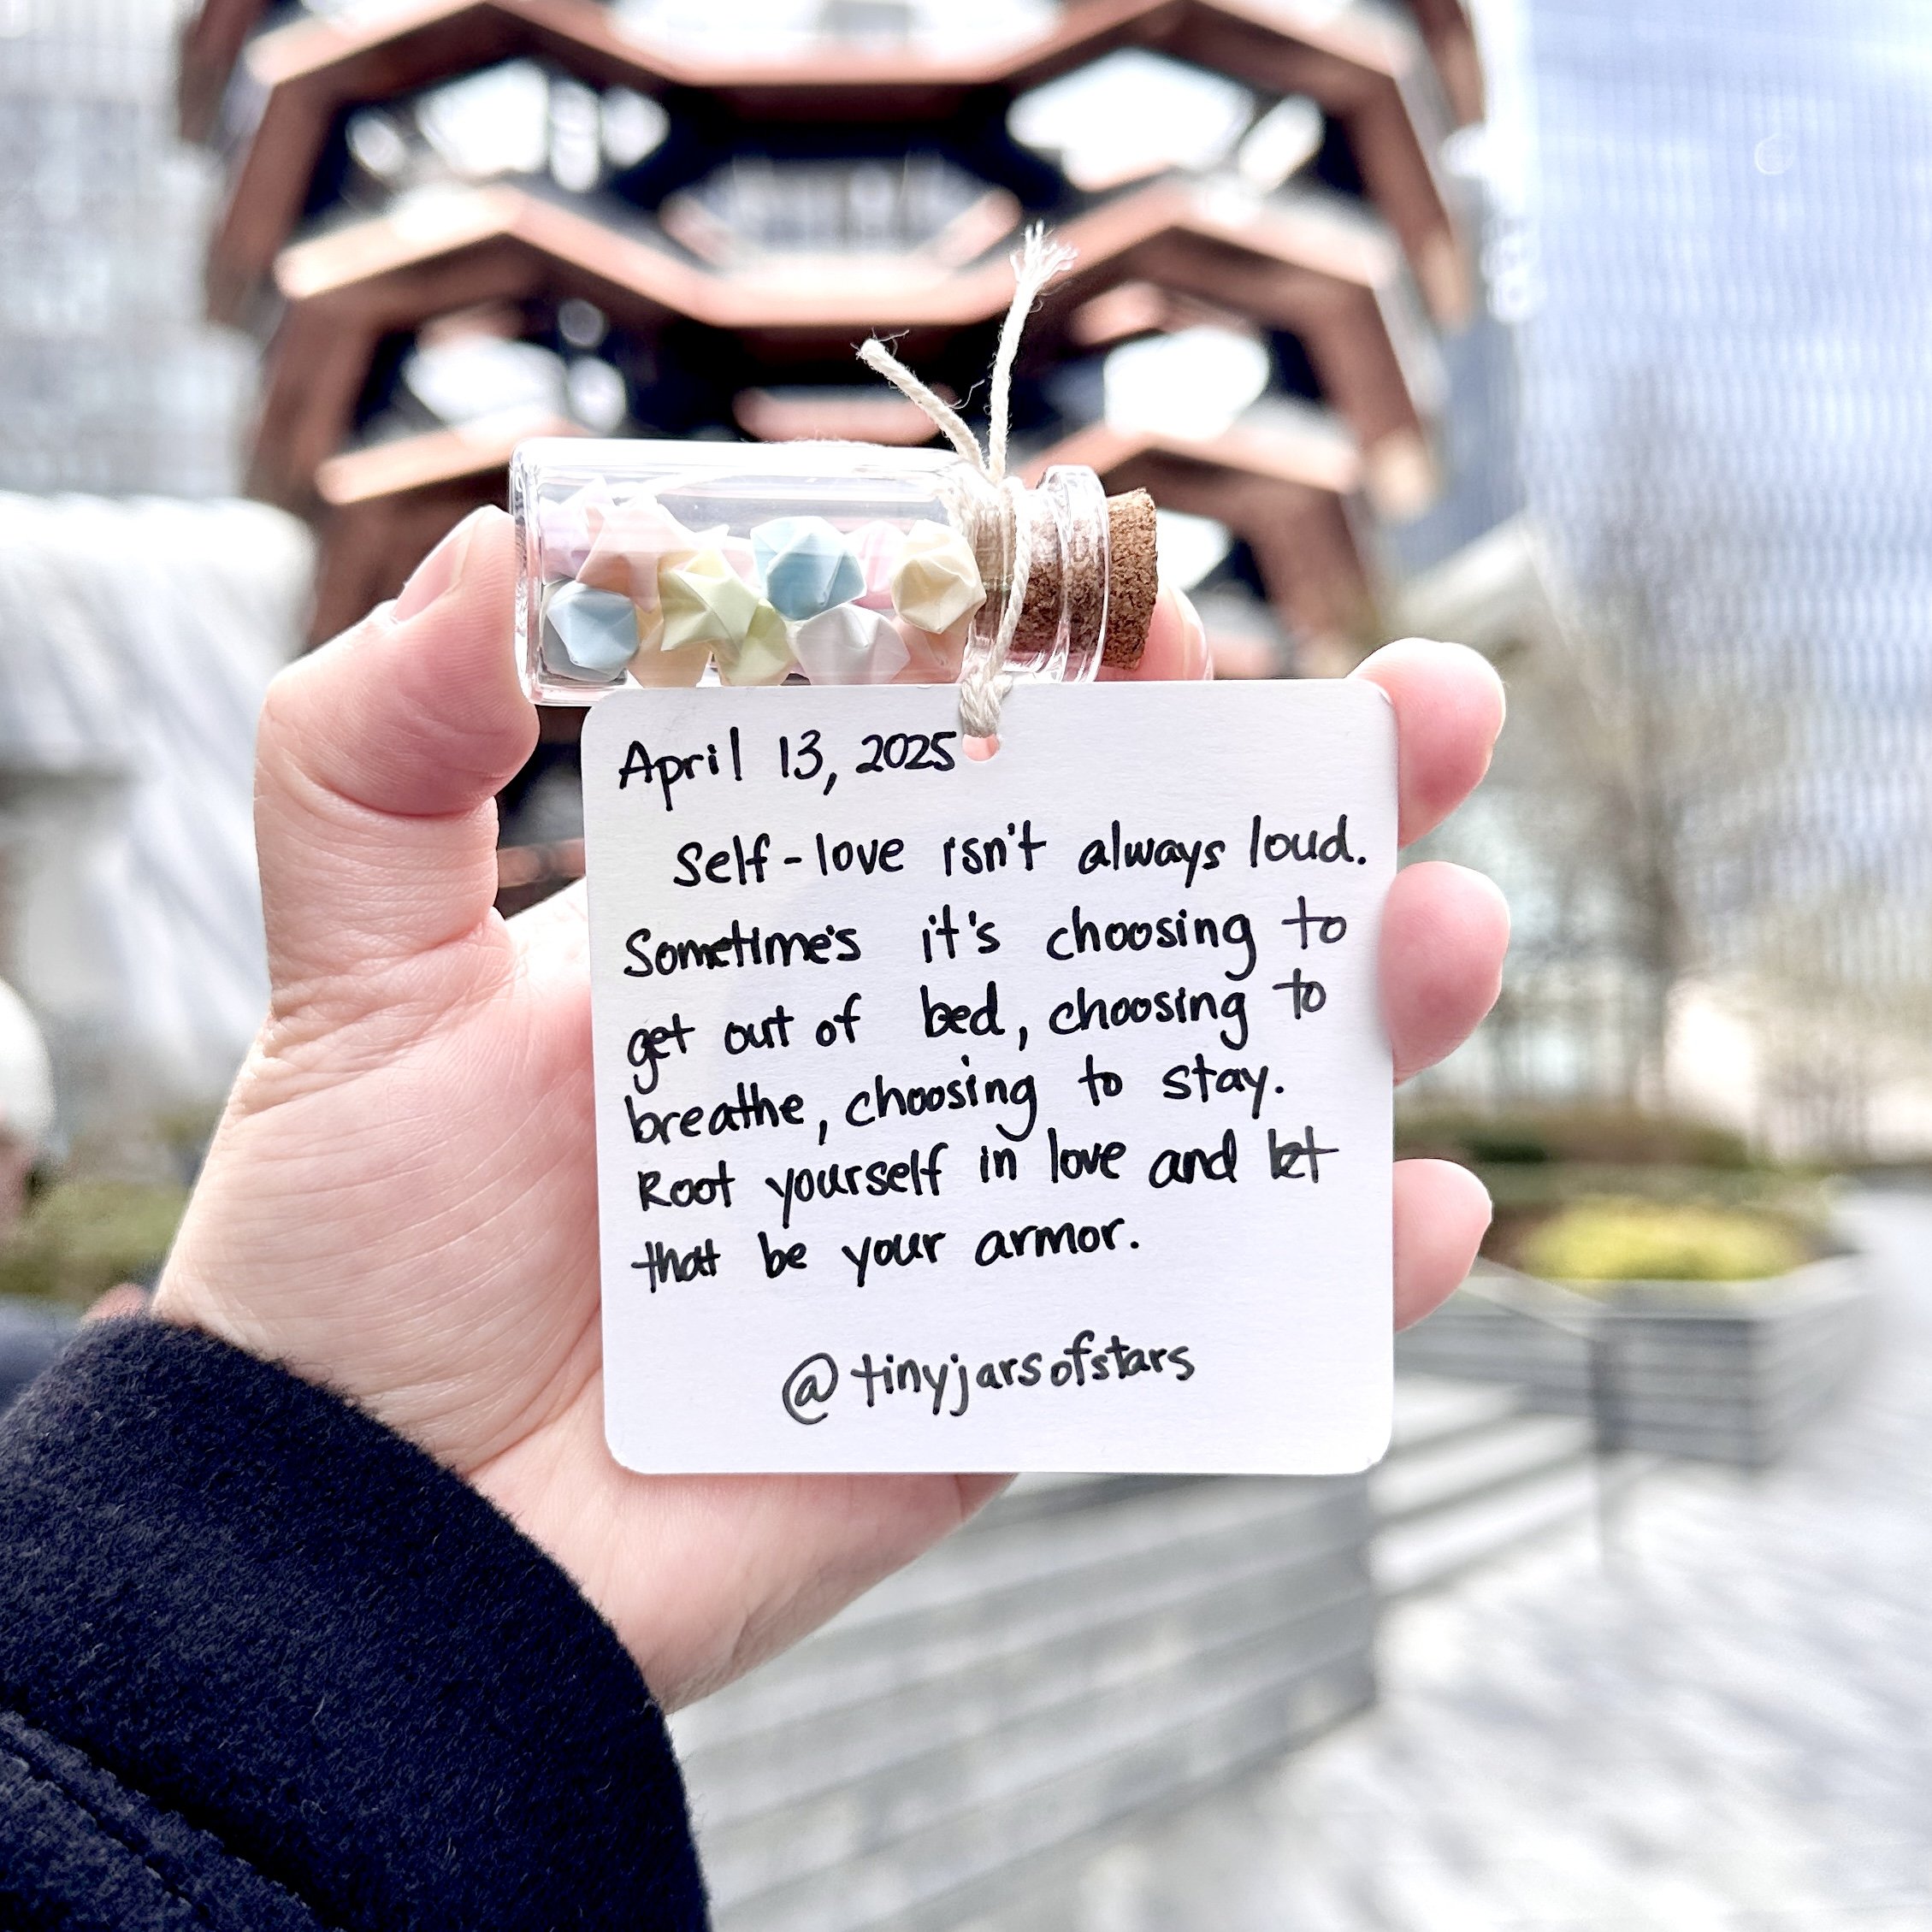 April 13, 2025
Self-love isn't always loud.
Sometime's it's choosing to
get out of bed, choosing to
breathe, choosing to stay.
Root yourself in love and let
that be your armor.
@tinyjarsofstars